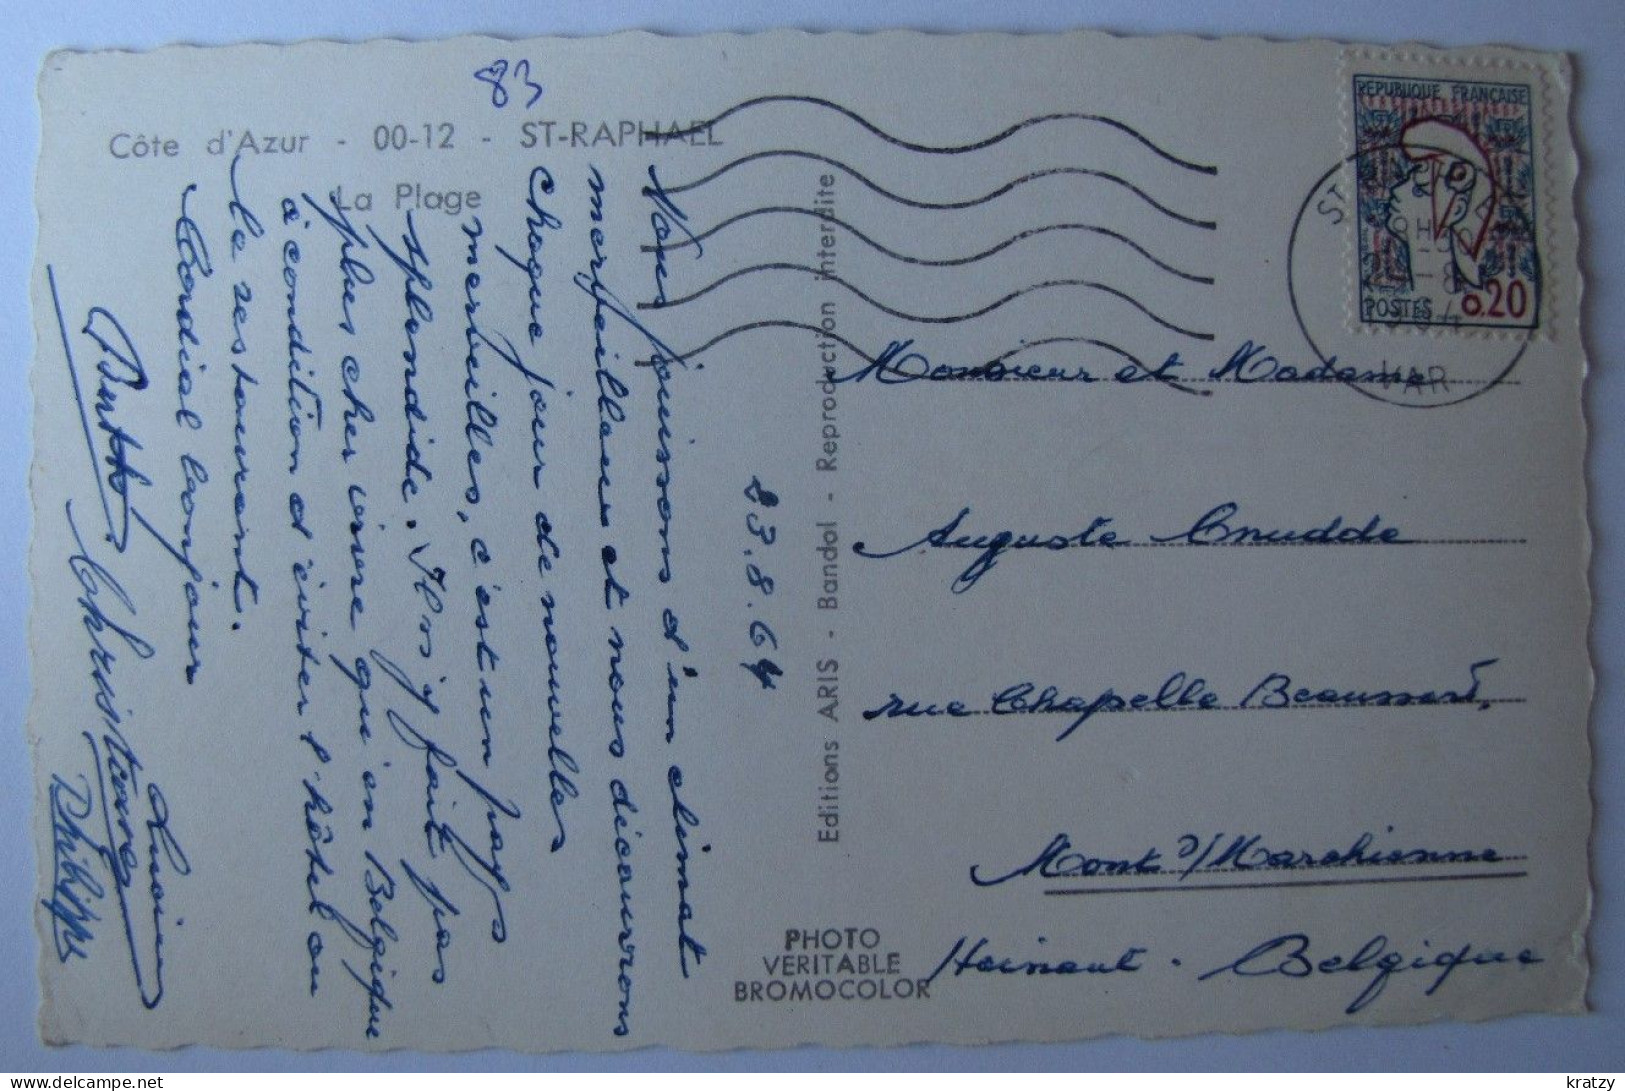 83
Côte d'Azur - 00-12 - ST-RAPHAEL
La Plage
23.8.64
Nous jouissons d'un climat
merveilleux et nous découvrons
chaque jour de nouvelles
merveilles, c'est un pays
splendide. Il n'y fait pas
plus cher vivre qu'en Belgique
à condition d'éviter l'hôtel ou
le restaurant.
Cordial bonjour
Lucien
Christiane
Philippe
Editions ARIS - Bandol - Reproduction interdite
PHOTO
VERITABLE
BROMOCOLOR
RÉPUBLIQUE FRANÇAISE
POSTES
0.20
ST
VAR
Monsieur et Madame
Auguste Cnudde
rue Chapelle Beaussart,
Mont s/Marchienne
Hainaut - Belgique
kratzy